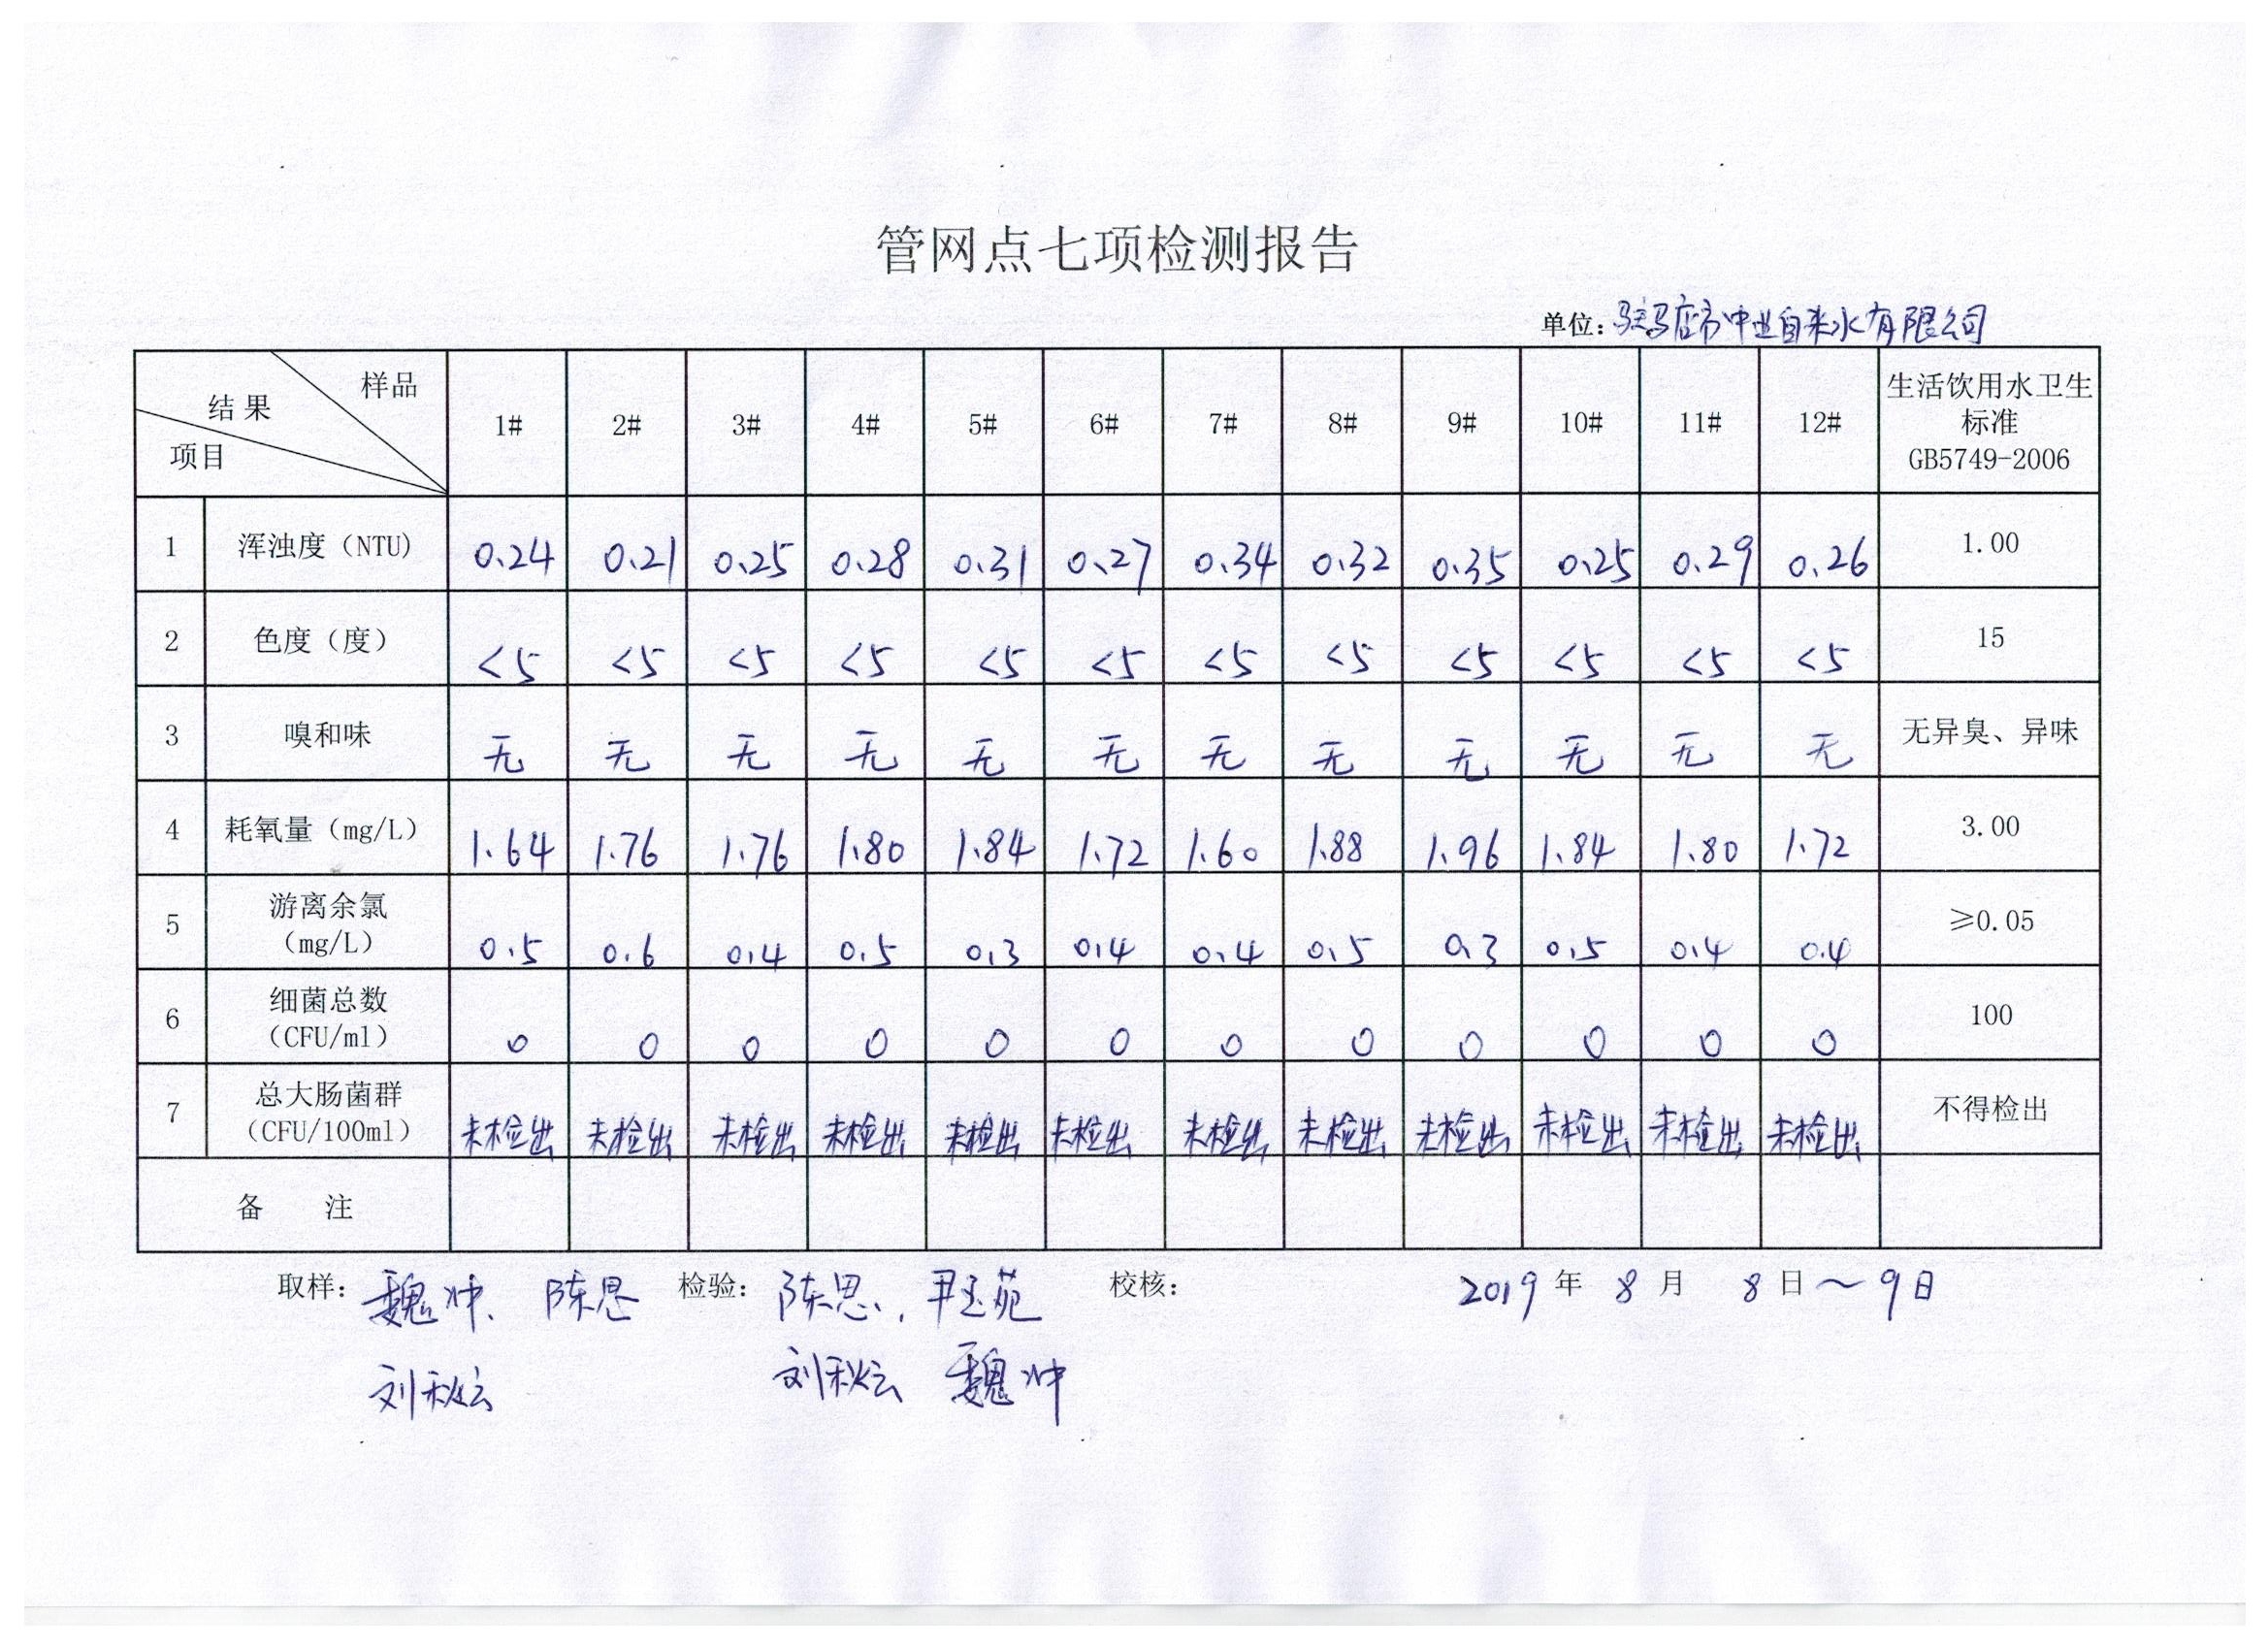 管网点七项检测报告
单位：驻马店市中业自来水有限公司
样品 结果 项目 1# 2# 3# 4# 5# 6# 7# 8# 9# 10# 11# 12# 生活饮用水卫生标准 GB5749-2006
1 浑浊度（NTU) 0.24 0.21 0.25 0.28 0.31 0.27 0.34 0.32 0.35 0.25 0.29 0.26 1.00
2 色度（度） <5 <5 <5 <5 <5 <5 <5 <5 <5 <5 <5 <5 15
3 嗅和味 无 无 无 无 无 无 无 无 无 无 无 无 无异臭、异味
4 耗氧量（mg/L） 1.64 1.76 1.76 1.80 1.84 1.72 1.60 1.88 1.96 1.84 1.80 1.72 3.00
5 游离余氯（mg/L） 0.5 0.6 0.4 0.5 0.3 0.4 0.4 0.5 0.3 0.5 0.4 0.4 ≥0.05
6 细菌总数（CFU/ml） 0 0 0 0 0 0 0 0 0 0 0 0 100
7 总大肠菌群（CFU/100ml） 未检出 未检出 未检出 未检出 未检出 未检出 未检出 未检出 未检出 未检出 未检出 未检出 不得检出
备 注
取样： 魏冲、 陈思 检验： 陈思、尹玉苑 校核： 2019 年 8 月 8 日～9日
刘秋云 刘秋云 魏冲